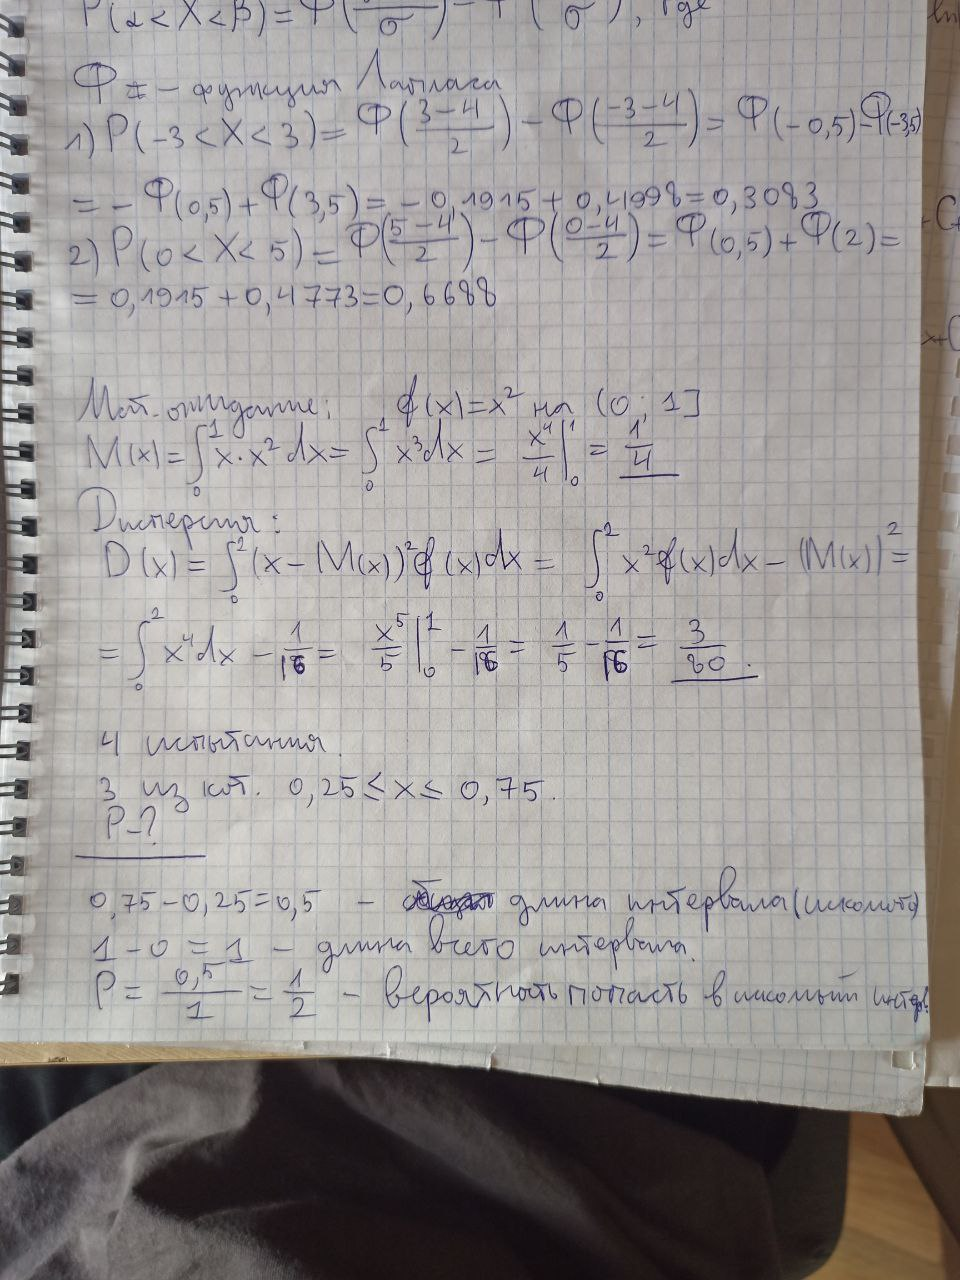 P(α < X < β) = Φ( / σ) - Φ( / σ), где
Φ - функция Лапласа
1) P(-3 < X < 3) = Φ((3-4)/2) - Φ((-3-4)/2) = Φ(-0,5) - Φ(-3,5)
= - Φ(0,5) + Φ(3,5) = - 0,1915 + 0,4998 = 0,3083
2) P(0 < X < 5) = Φ((5-4)/2) - Φ((0-4)/2) = Φ(0,5) + Φ(2) =
= 0,1915 + 0,4773 = 0,6688
Мат. ожидание: f(x) = x² на (0; 1]
M(x) = ∫₀¹ x·x² dx = ∫₀¹ x³dx = x⁴/4 |₀¹ = 1/4
Дисперсия:
D(x) = ∫₀² (x - M(x))² f(x)dx = ∫₀² x² f(x)dx - (M(x))² =
= ∫₀² x⁴dx - 1/16 = x⁵/5 |₀¹ - 1/16 = 1/5 - 1/16 = 3/80.
4 испытания.
3 из кот. 0,25 ≤ x ≤ 0,75.
P-?
0,75 - 0,25 = 0,5 - длина интервала (искомого)
1 - 0 = 1 - длина всего интервала.
P = 0,5/1 = 1/2 - вероятность попасть в искомый интерв.